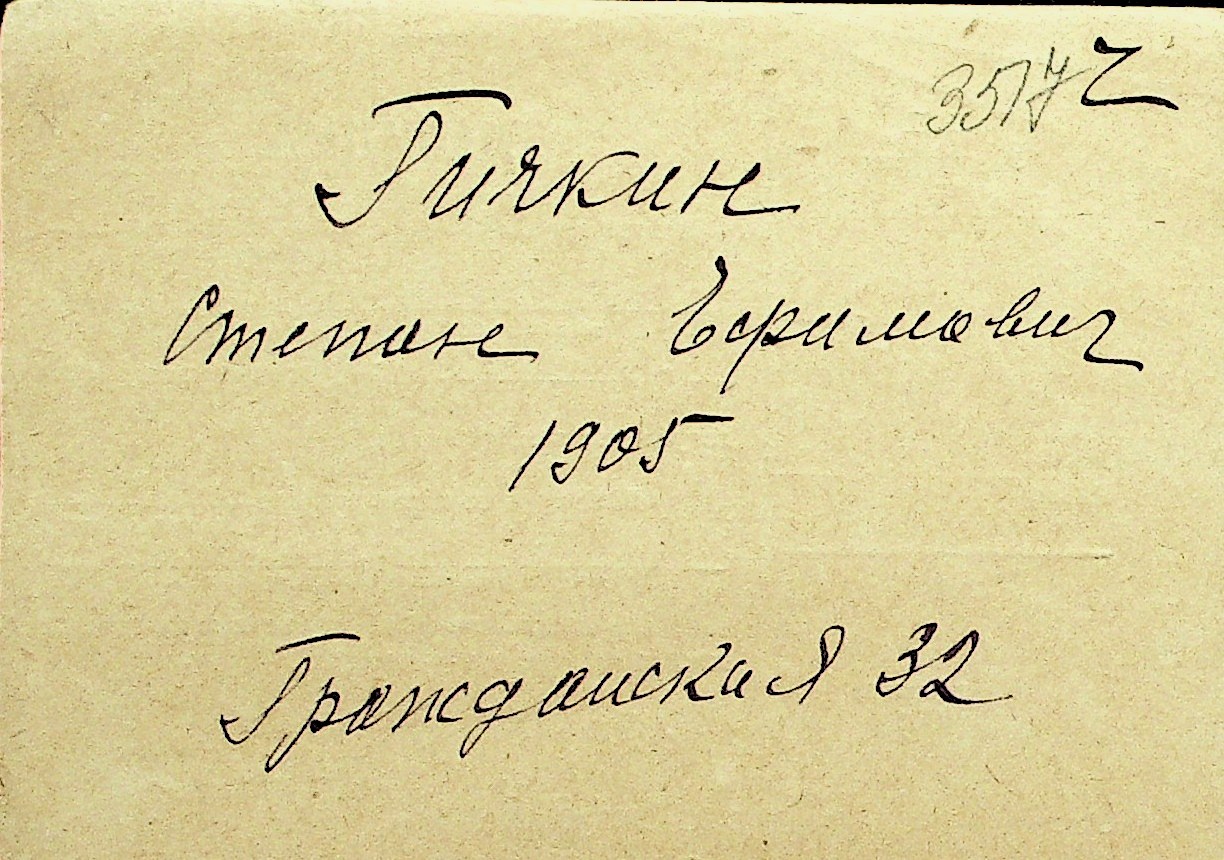 3517 ч
Гичкин
Степан Ефимович
1905
Гражданская 32